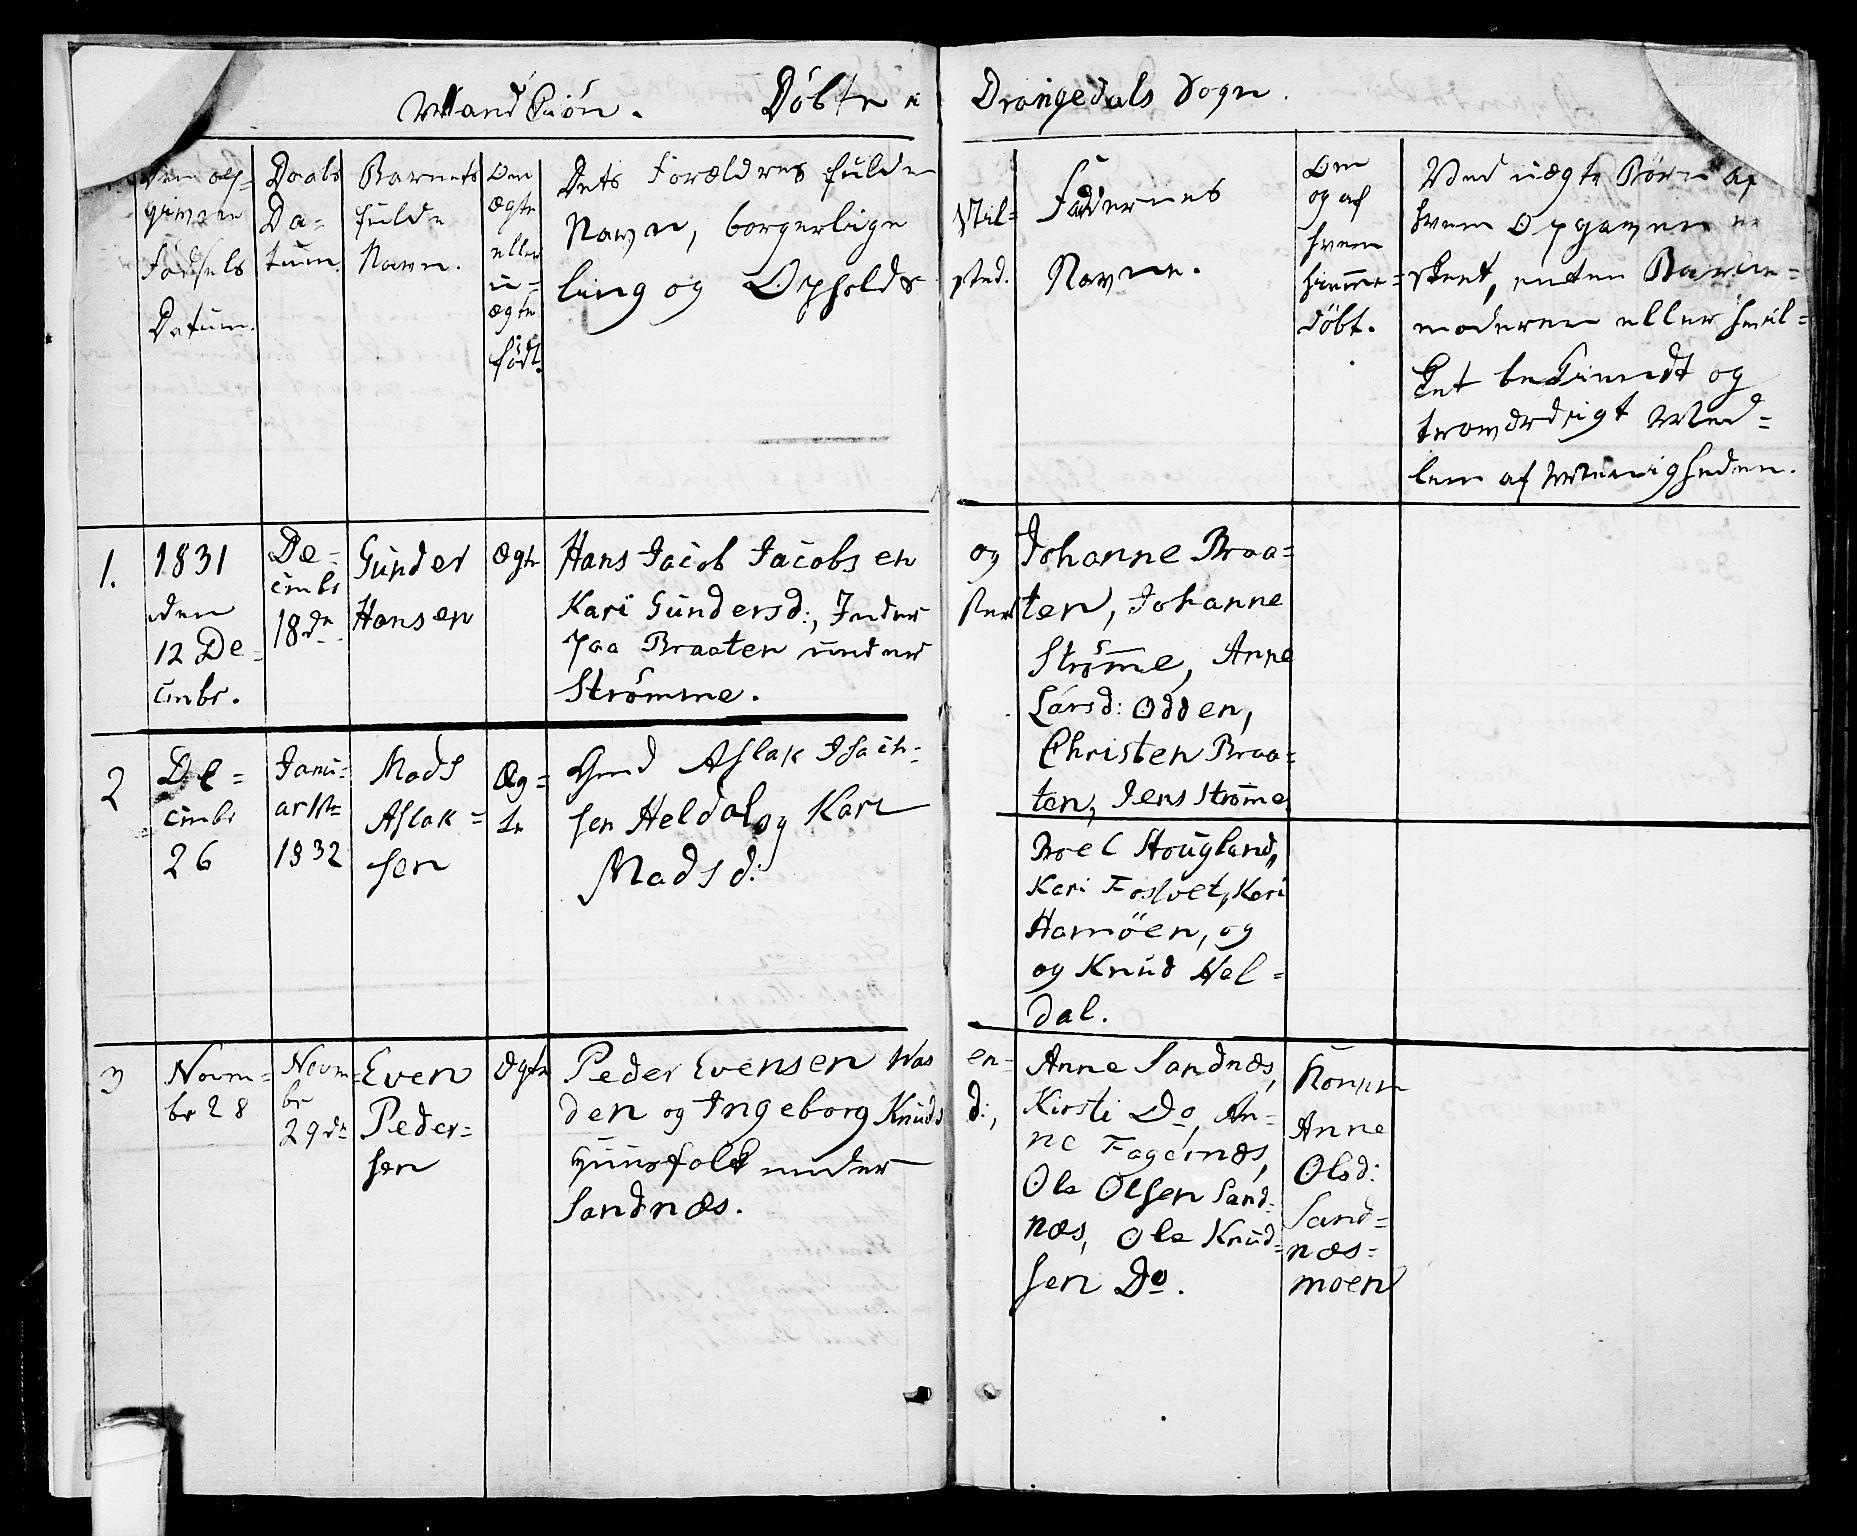 Mandkiön. Döbte i Drangedals Sogn.
Den opgivne Födsels Datum.
Daabs Datum.
Barnets
fulde
Navn.
Om
ægte
eller
u=
ægte
födt.
Dets Forældres fulde
Navn, borgerlige Stil=
ling og Opholdssted.
Faddernes
Navne.
Om
og af
hvem
hjemme=
döbt.
Ved uægte Börn af
hvem Opgaven er
skeet, enten Barne=
moderen eller hvil=
ket bekiendt og
troværdigt Med=
lem af Menigheden.
1.
1831
den
12 De=
cmbr.
De=
cmbr
18de
Gunder
Hansen
Ægte
Hans Jacob Jacobsen og
Kari Gundersd:, Inder ster
paa Braaten under
Strömme.
Johanne Braa=
ten, Johanne
Strömme, Anne
Larsd: Odden,
Christen Braa=
ten, Jens Strömme.
2
De=
cmbr
26
Janu=
ar 1ste
1832
Mads
Aslak=
sen
Æg=
te
Gmd Aslak Isach=
sen Heldal og Kari
Madsd:
Boel Hougland,
Kari Fostvet, Kari
Hamöen, og
og Knud Hel=
dal.
3
Novm=
br 28
Novm=
br
29de
Even
Peder=
sen
Ægte
Peder Evensen Was en=
den og Ingeborg Knuds d:,
Huusfolk under
Sandnæs.
Anne Sandnæs,
Kirsti Do, An=
ne Fagernæs,
Ole Olsen Sand=
næs, Ole Knud=
sen Do.
Konen
Anne
Olsd:
Sand=
næs=
moen